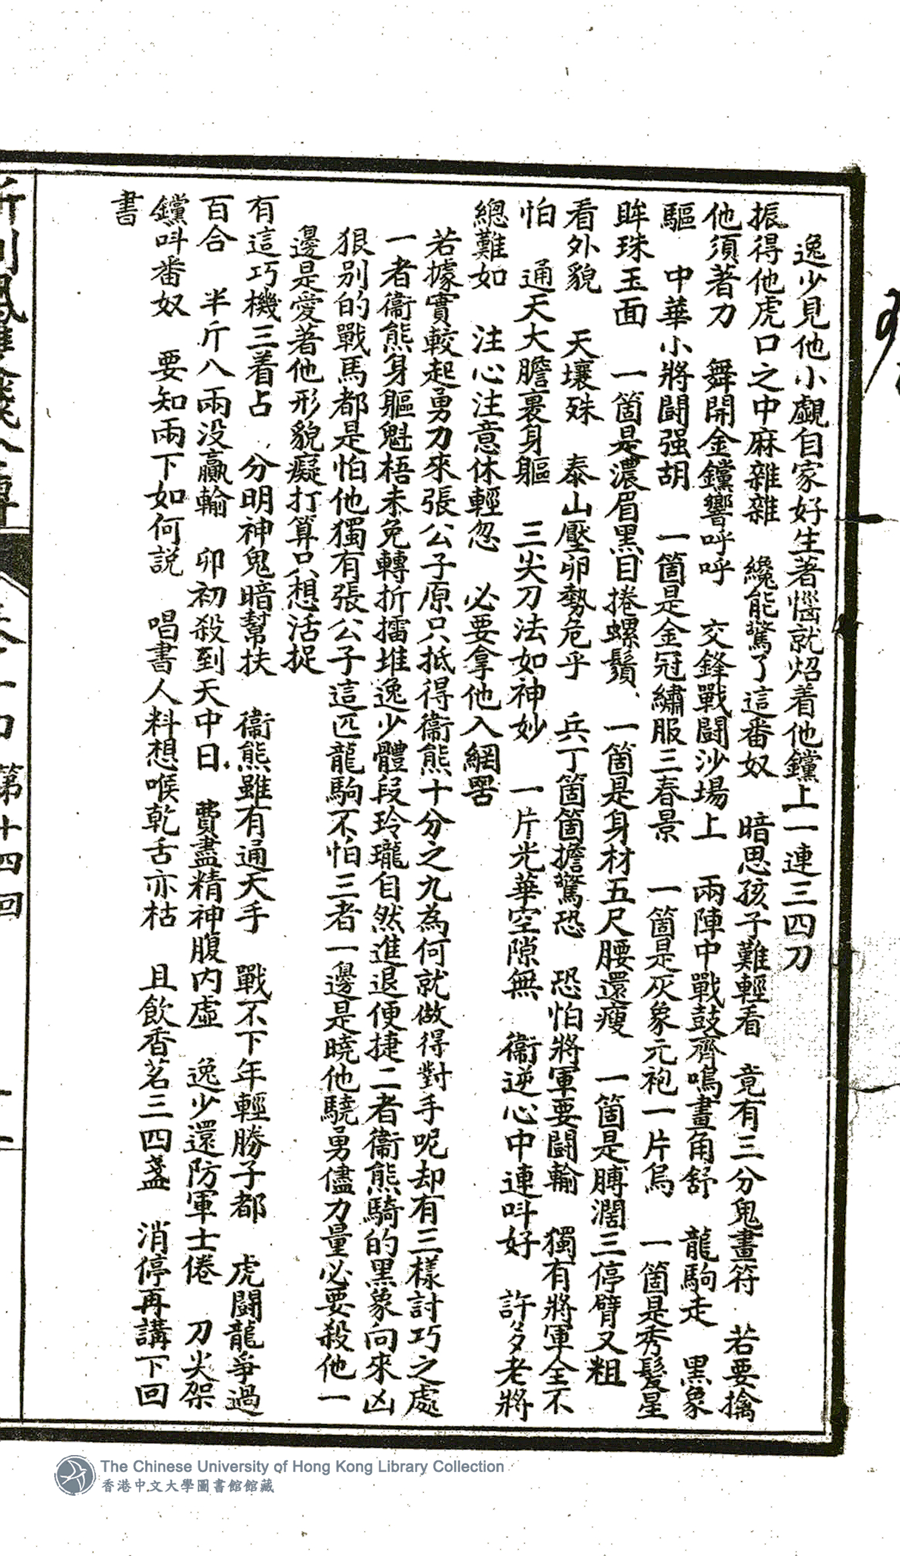 逸少見他小覷自家好生著惱就炤着他钂上一連三四刀
振得他虎口之中麻雜雜　纔能驚了這番奴　暗思孩子難輕看　竟有三分鬼畫符　若要擒
他須著刀　舞開金钂響呼呼　交鋒戰鬪沙場上　兩陣中戰鼓齊鳴畫角舒　龍駒走　黑象
驅　中華小將鬪强胡　一箇是金冠繡服三春景　一箇是灰象元袍一片烏　一箇是秀髮星
眸珠玉面　一箇是濃眉黑目捲螺鬚　一箇是身材五尺腰還瘦　一箇是膊濶三停臂又粗
看外貌　天壤殊　泰山壓卵勢危乎　兵丁箇箇擔驚恐　恐怕將軍要鬪輸　獨有將軍全不
怕　通天大膽裹身軀　三尖刀法如神妙　一片光華空隙無　衞逆心中連呌好　許多老將
總難如　注心注意休輕忽　必要拿他入網罟
若據實較起勇力來張公子原只抵得衞熊十分之九為何就做得對手呢却有三樣討巧之處
一者衞熊身軀魁梧未免轉折擂堆逸少體段玲瓏自然進退便捷二者衞熊騎的黑象向來凶
狠別的戰馬都是怕他獨有張公子這匹龍駒不怕三者一邊是曉他驍勇儘力量必要殺他一
邊是愛著他形貌癡打算只想活捉
有這巧機三着占　分明神鬼暗幫扶　衞熊雖有通天手　戰不下年輕勝子都　虎鬪龍爭過
百合　半斤八兩没贏輸　卯初殺到天中日　費盡精神腹内虛　逸少還防軍士倦　刀尖架
钂呌番奴　要知兩下如何説　唱書人料想喉乾舌亦枯　且飲香茗三四盞　消停再講下回
書
第十四回
The Chinese University of Hong Kong Library Collection
香港中文大學圖書館館藏